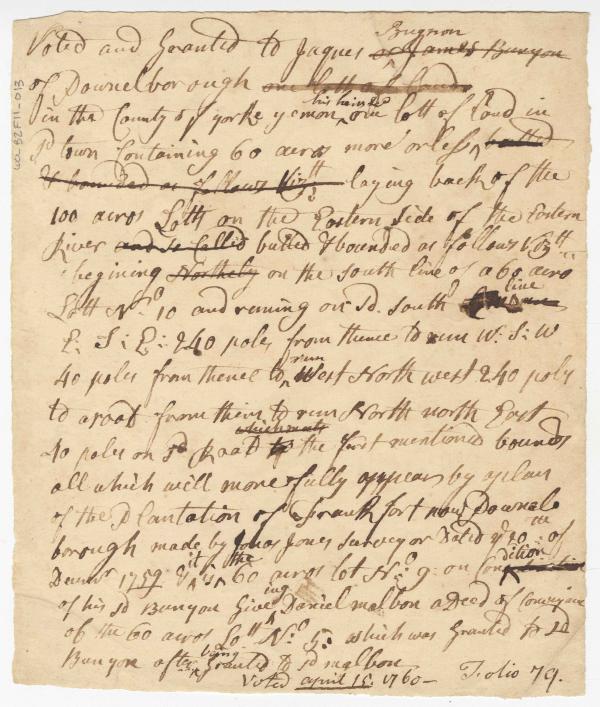 Voted and Granted to Jaques Bugnon or James Bunyon
of Pownelborough one lott of Land
in the County of yorke yemon his heirs &c one lott of Land in
sd town Containing 60 acros more or less, butted
& bounded as follows Vizth laying back of the
100 acros Lotts on the Eastern side of the Eastern
River and so Called butted & bounded as follows Vizth
begining Northely on the south line of a 60 acro
Lott No 10 and runing on sd. south line
E: S: E: 240 poles from thence to run W: S: W
40 poles from thence to run West North west 240 pols
to a roat from thens to run North north East
40 poles on sd Roat to which meets the furst mentioned bounds
all which will more fully appear by a plan
of the Plantation of Frankfort now Pownalo
borough made by Jonas Jones surveyor Dated ye 20th of
Decemr 1759 & it is the 60 acros lot No 9: on Condition
of his sd Bunyon Giveing Daniel malbon a Deed of Conveyane
of the 60 acros Lott No 5: which was Granted to sd
Bunyon after being Granted to sd malbon
Voted april 15: 1760— Folio 79.
wa 82F11-013